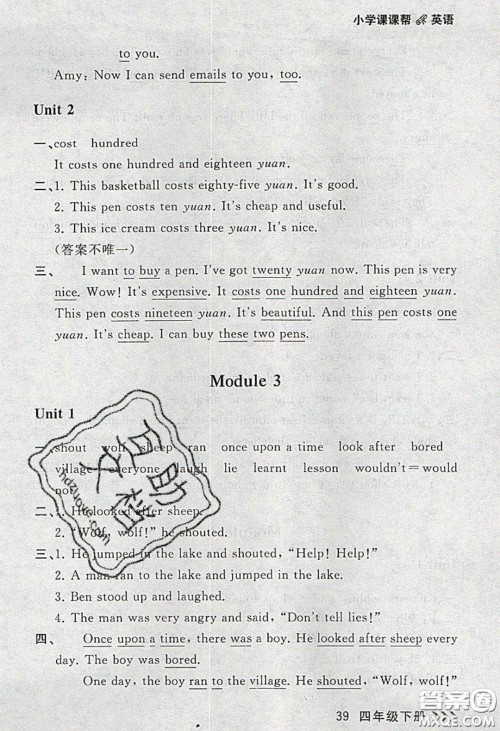 小学课课帮 英语
to you.
Amy: Now I can send emails to you, too.
Unit 2
一、cost hundred
It costs one hundred and eighteen yuan.
二、1. This basketball costs eighty-five yuan. It's good.
2. This pen costs ten yuan. It's cheap and useful.
3. This ice cream costs three yuan. It's nice.
(答案不唯一)
三、 I want to buy a pen. I've got twenty yuan now. This pen is very
nice. Wow! It's expensive. It costs one hundred and eighteen yuan.
This pen costs nineteen yuan. It's beautiful. And this pen costs one
yuan. It's cheap. I can buy these two pens.
Module 3
Unit 1
一、shout wolf sheep ran once upon a time look after bored
village everyone laugh lie learnt lesson wouldn't=would
not
二、1. He looked after sheep.
2. "Wolf, wolf!" he shouted.
三、1. He jumped in the lake and shouted, "Help! Help!"
2. A man ran to the lake and jumped in the lake.
3. Ben stood up and laughed.
4. The man was very angry and said, "Don't tell lies!"
四、 Once upon a time, there was a boy. He looked after sheep every
day. The boy was bored.
One day, the boy ran to the village. He shouted, "Wolf, wolf!"
39 四年级下册
互助文档
hdzuoye.com
答案圈
MXQE.COM